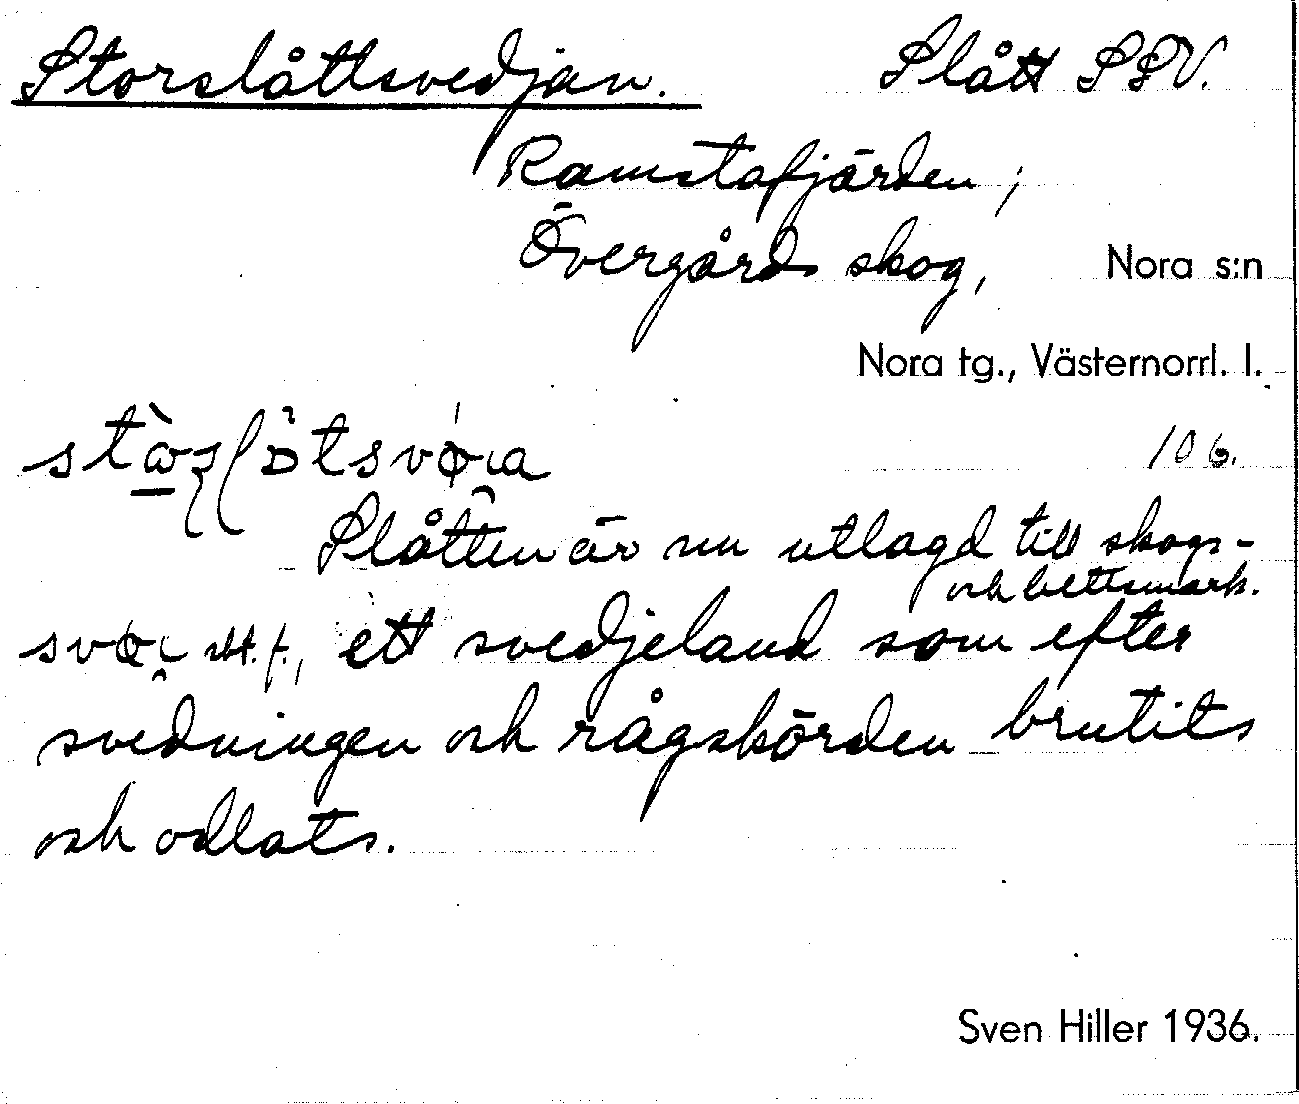 Storslåttsvedjan. Slått SSV.
Ramstafjärden;
Övergårds skog, Nora s:n
Nora tg., Västernorrl. l.
106.
Slåtten är nu utlagd till skogs-
och betesmark.
ett svedjeland som efter
svedningen och rågskörden brutits
och odlats.
Sven Hiller 1936.